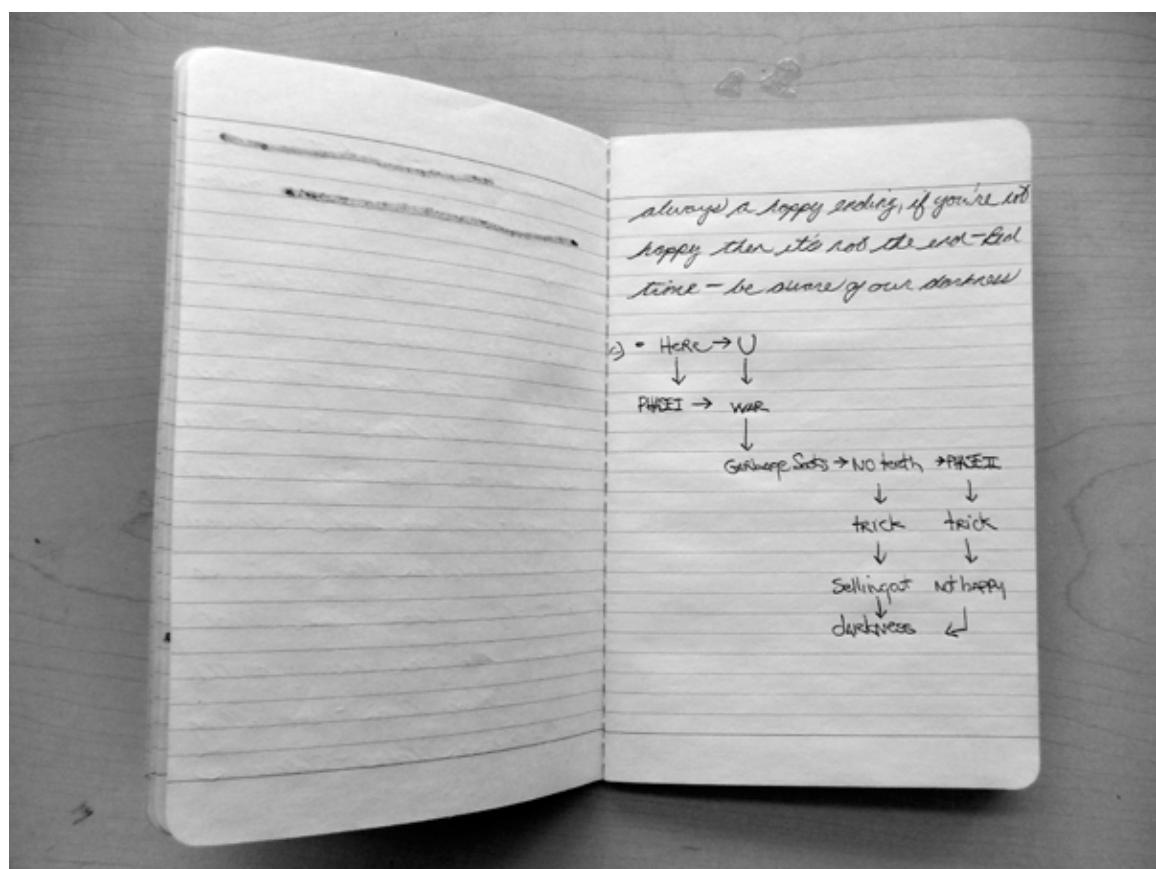 always a happy ending, if you're not
happy then it's not the end - Bed
time - be aware of our darkness
• HERE → U
↓ ↓
PHASE I → WAR
↓
Garbage → NO teeth → PHASE II
↓ ↓
trick trick
↓ ↓
Selling out Not happy
↓
darkness ↵